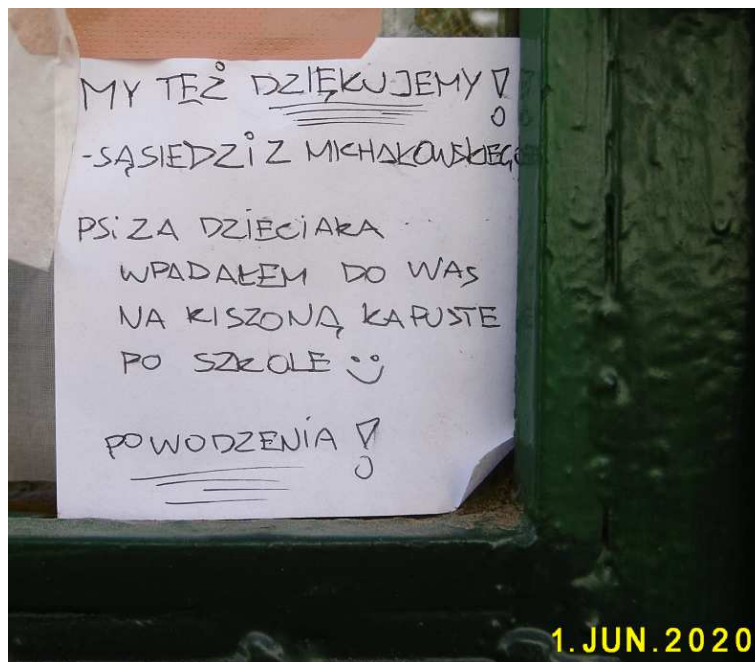 MY TEŻ DZIĘKUJEMY!
-SĄSIEDZI Z MICHAŁOWSKIEGO
PSi ZA DZIECIAKA
WPADAŁEM DO WAS
NA KISZONĄ KAPUSTE
PO SZKOLE :)
POWODZENIA!
1.JUN.2020